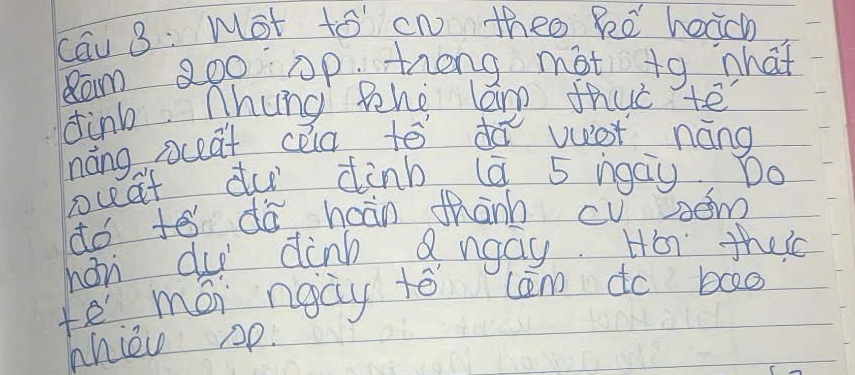 Câu 3. Một tổ CN theo kế hoạch
làm 200 sp. trong một tg nhất
định. Nhưng khi làm thực tế
năng suất của tổ đã vượt năng
suất dự định là 5 ngày. Do
đó tổ đã hoàn thành cv sớm
hơn dự định 2 ngày. Hỏi thực
tế mỗi ngày tổ làm đc bao
nhiêu sp.